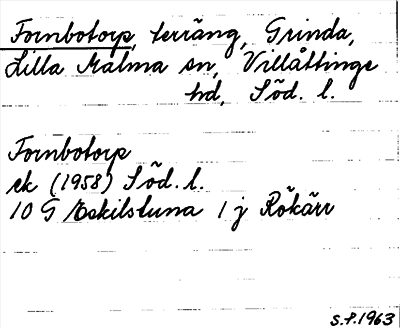 Fornbotorp, terräng, Grinda,
Lilla Malma sn, Villåttinge
hd, Söd. l.
Fornbotorp
ek (1958) Söd. l.
10 G Eskilstuna 1 j Rökärr
S.P. 1963